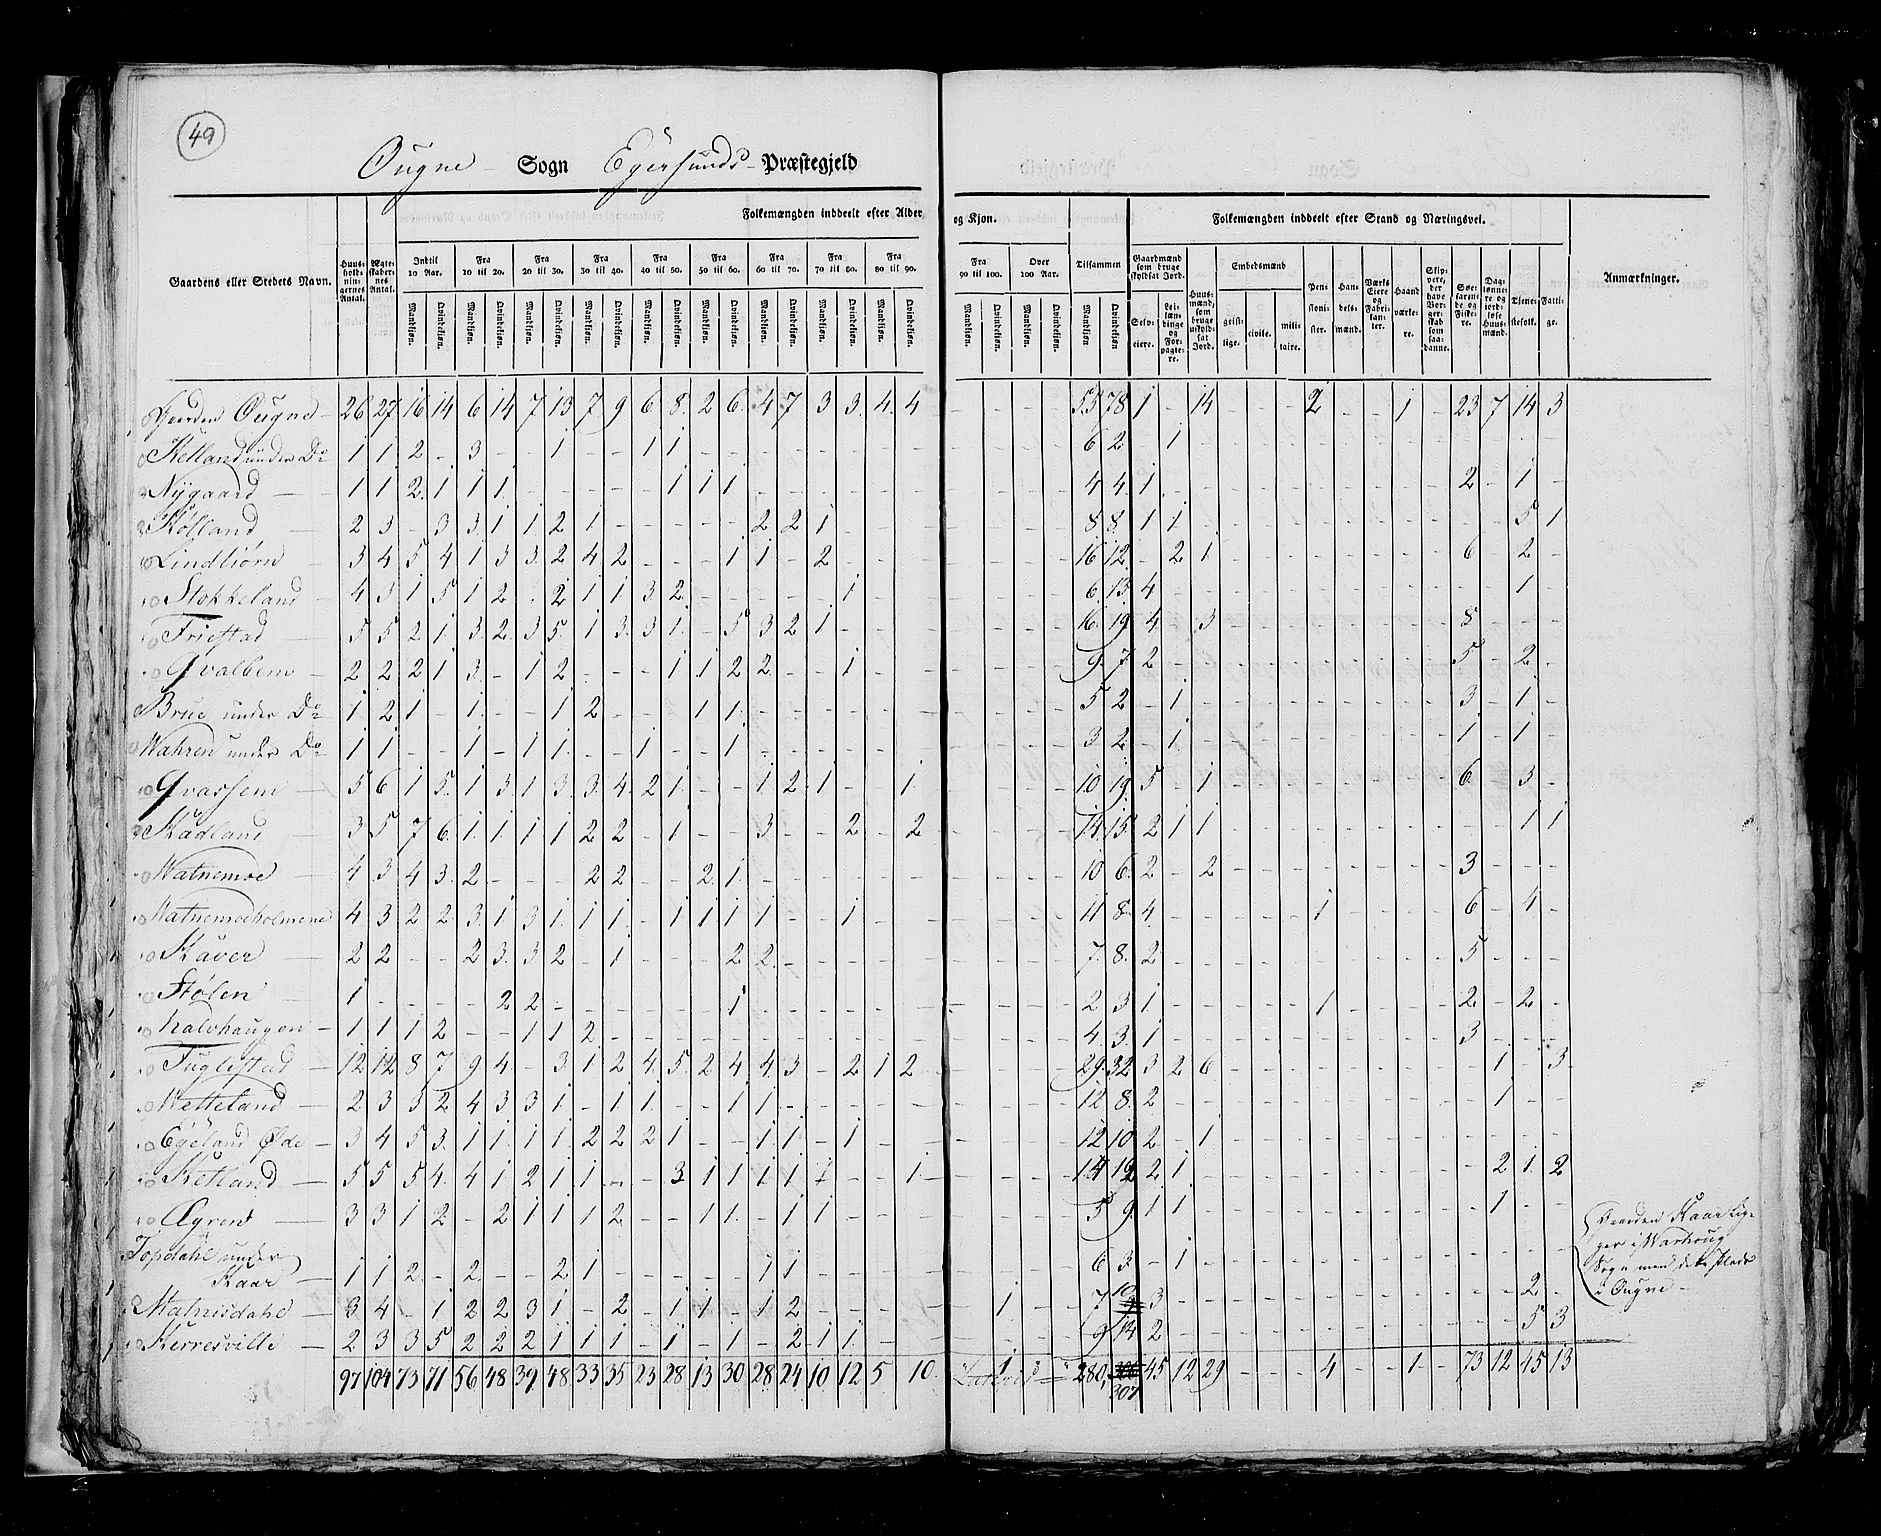 49
Ougne Sogn Egersunds Præstegjeld
Folkemængden inddeelt efter Alder og Kjøn.
Folkemængden inddeelt efter Stand og Næringsvei.
Gaardens eller Stedets Navn.
Huusholdningernes Antal.
Ægteskabernes Antal.
Indtil 10 Aar.
Fra 10 til 20.
Fra 20 til 30.
Fra 30 til 40.
Fra 40 til 50.
Fra 50 til 60.
Fra 60 til 70.
Fra 70 til 80.
Fra 80 til 90.
Fra 90 til 100.
Over 100 Aar.
Tilsammen
Mandkjøn. Qvindekjøn.
Gaardmænd som bruge skyldsat Jord.
Selveiere.
Leilændinge og Forpagtere.
Huusmænd, som bruge uskyldsat Jord.
Embedsmænd
geistlige.
civile.
militaire.
Pensionister.
Handelsmænd.
Værks Eiere og Fabrikanter.
Haandværkere.
Skippere, der have Borgerskab som saadanne.
Søefarende og Fiskere.
Daglønnere og jordløse Huusmænd.
Tjenestefolk.
Fattige.
Anmærkninger.
Gaarden Ougne 26 27 16 14 6 14 7 13 7 9 6 8 2 6 4 7 3 3 4 4 - - - - 55 78 1 - 14 - - - 2 - - 1 - 23 7 14 3
Hetland under Do 1 1 2 - 3 - - 1 - - 1 1 6 2 - 1
Nygaard 1 1 2 1 1 1 - - - - - 1 1 1 4 4 1 2 - 1 -
Kolland 2 3 - 3 3 1 1 2 1 - - - - - 2 2 1 8 8 1 1 5 1
Lindtiørn 3 4 5 4 1 3 3 2 4 2 - - - 1 1 - 2 16 12 - 2 1 6 - 2 -
Stokkeland 4 3 1 5 1 2 - 2 1 1 3 2 - - - - - 1 6 13 4 1 -
Friestad 5 5 2 1 3 2 3 5 1 3 3 1 - 5 3 2 1 16 19 4 - 3 8 - - -
Qvalbem 2 2 2 1 3 - 1 2 - - - 1 1 2 2 - - 1 9 7 2 5 - 2 -
Brue under Do 1 2 1 - 1 - - 1 2 - - - 1 1 5 2 - 1 3 - 1 -
Wahren under Do 1 1 - - 1 - 1 1 - - 1 - - 1 3 2 - 1 1 - 1 -
Qvassem 5 6 1 5 1 3 1 3 3 4 2 1 - - 1 2 1 - - 1 10 19 5 - 1 6 - 3 -
Kadland 3 5 7 6 1 1 1 1 2 2 - 1 - - 3 - - 2 - 2 14 15 2 1 1 1 1
Watnemoe 4 3 4 3 2 - - - 2 2 - - 2 1 10 6 2 - 2 3 - - -
Watnemoeholmene 4 3 2 2 3 1 3 1 1 1 - 1 1 1 1 - - 1 11 8 4 1 6 - 4 -
Kaver 2 2 - - 2 3 3 2 - 1 - - - 2 2 7 8 2 5 - - -
Stølen 1 - - - - 2 2 - - - - - - 1 2 3 1 1 2 - 2 -
Kalvhaugen 1 1 1 2 - - 1 1 2 4 3 1 3 - - -
Fuglestad 12 12 8 7 9 4 - 3 1 2 4 5 2 4 4 3 - 2 1 2 29 32 3 2 6 1 - 3
Wetteland 2 3 3 2 4 3 3 1 - 1 1 - - 1 1 12 8 2 1 - -
Egeland Øde 3 4 5 3 1 1 1 1 2 2 2 1 - - 1 1 - 1 12 10 2 - 1
Hetland 5 5 5 4 4 1 2 1 1 - - 3 1 1 1 1 1 - - 1 14 12 2 1 2 1 2
Øgrend 3 3 1 2 - 2 1 1 1 2 - - 1 1 - 1 1 5 9 1 1 1 - -
Topdahl under
Kaar 1 1 2 - 2 - - 2 1 - - - - - 1 1 6 3 - 1
Malmisdahl 3 4 - 1 2 2 3 1 - 2 - 1 1 - 1 2 - - - - - 1 7 10 3 2 -
Kerresville 2 3 3 5 2 2 2 1 1 1 - 1 - 1 - 2 1 1 9 14 2 5 3
97 104 73 71 56 48 39 48 33 35 23 28 13 30 28 24 10 12 5 10 1 280 306 307 45 12 29 - - - 4 - - 1 - 73 12 45 13
Gaarden Kaar lig-
ger i Warhoug
Sogn men dette Plads
i Ougne